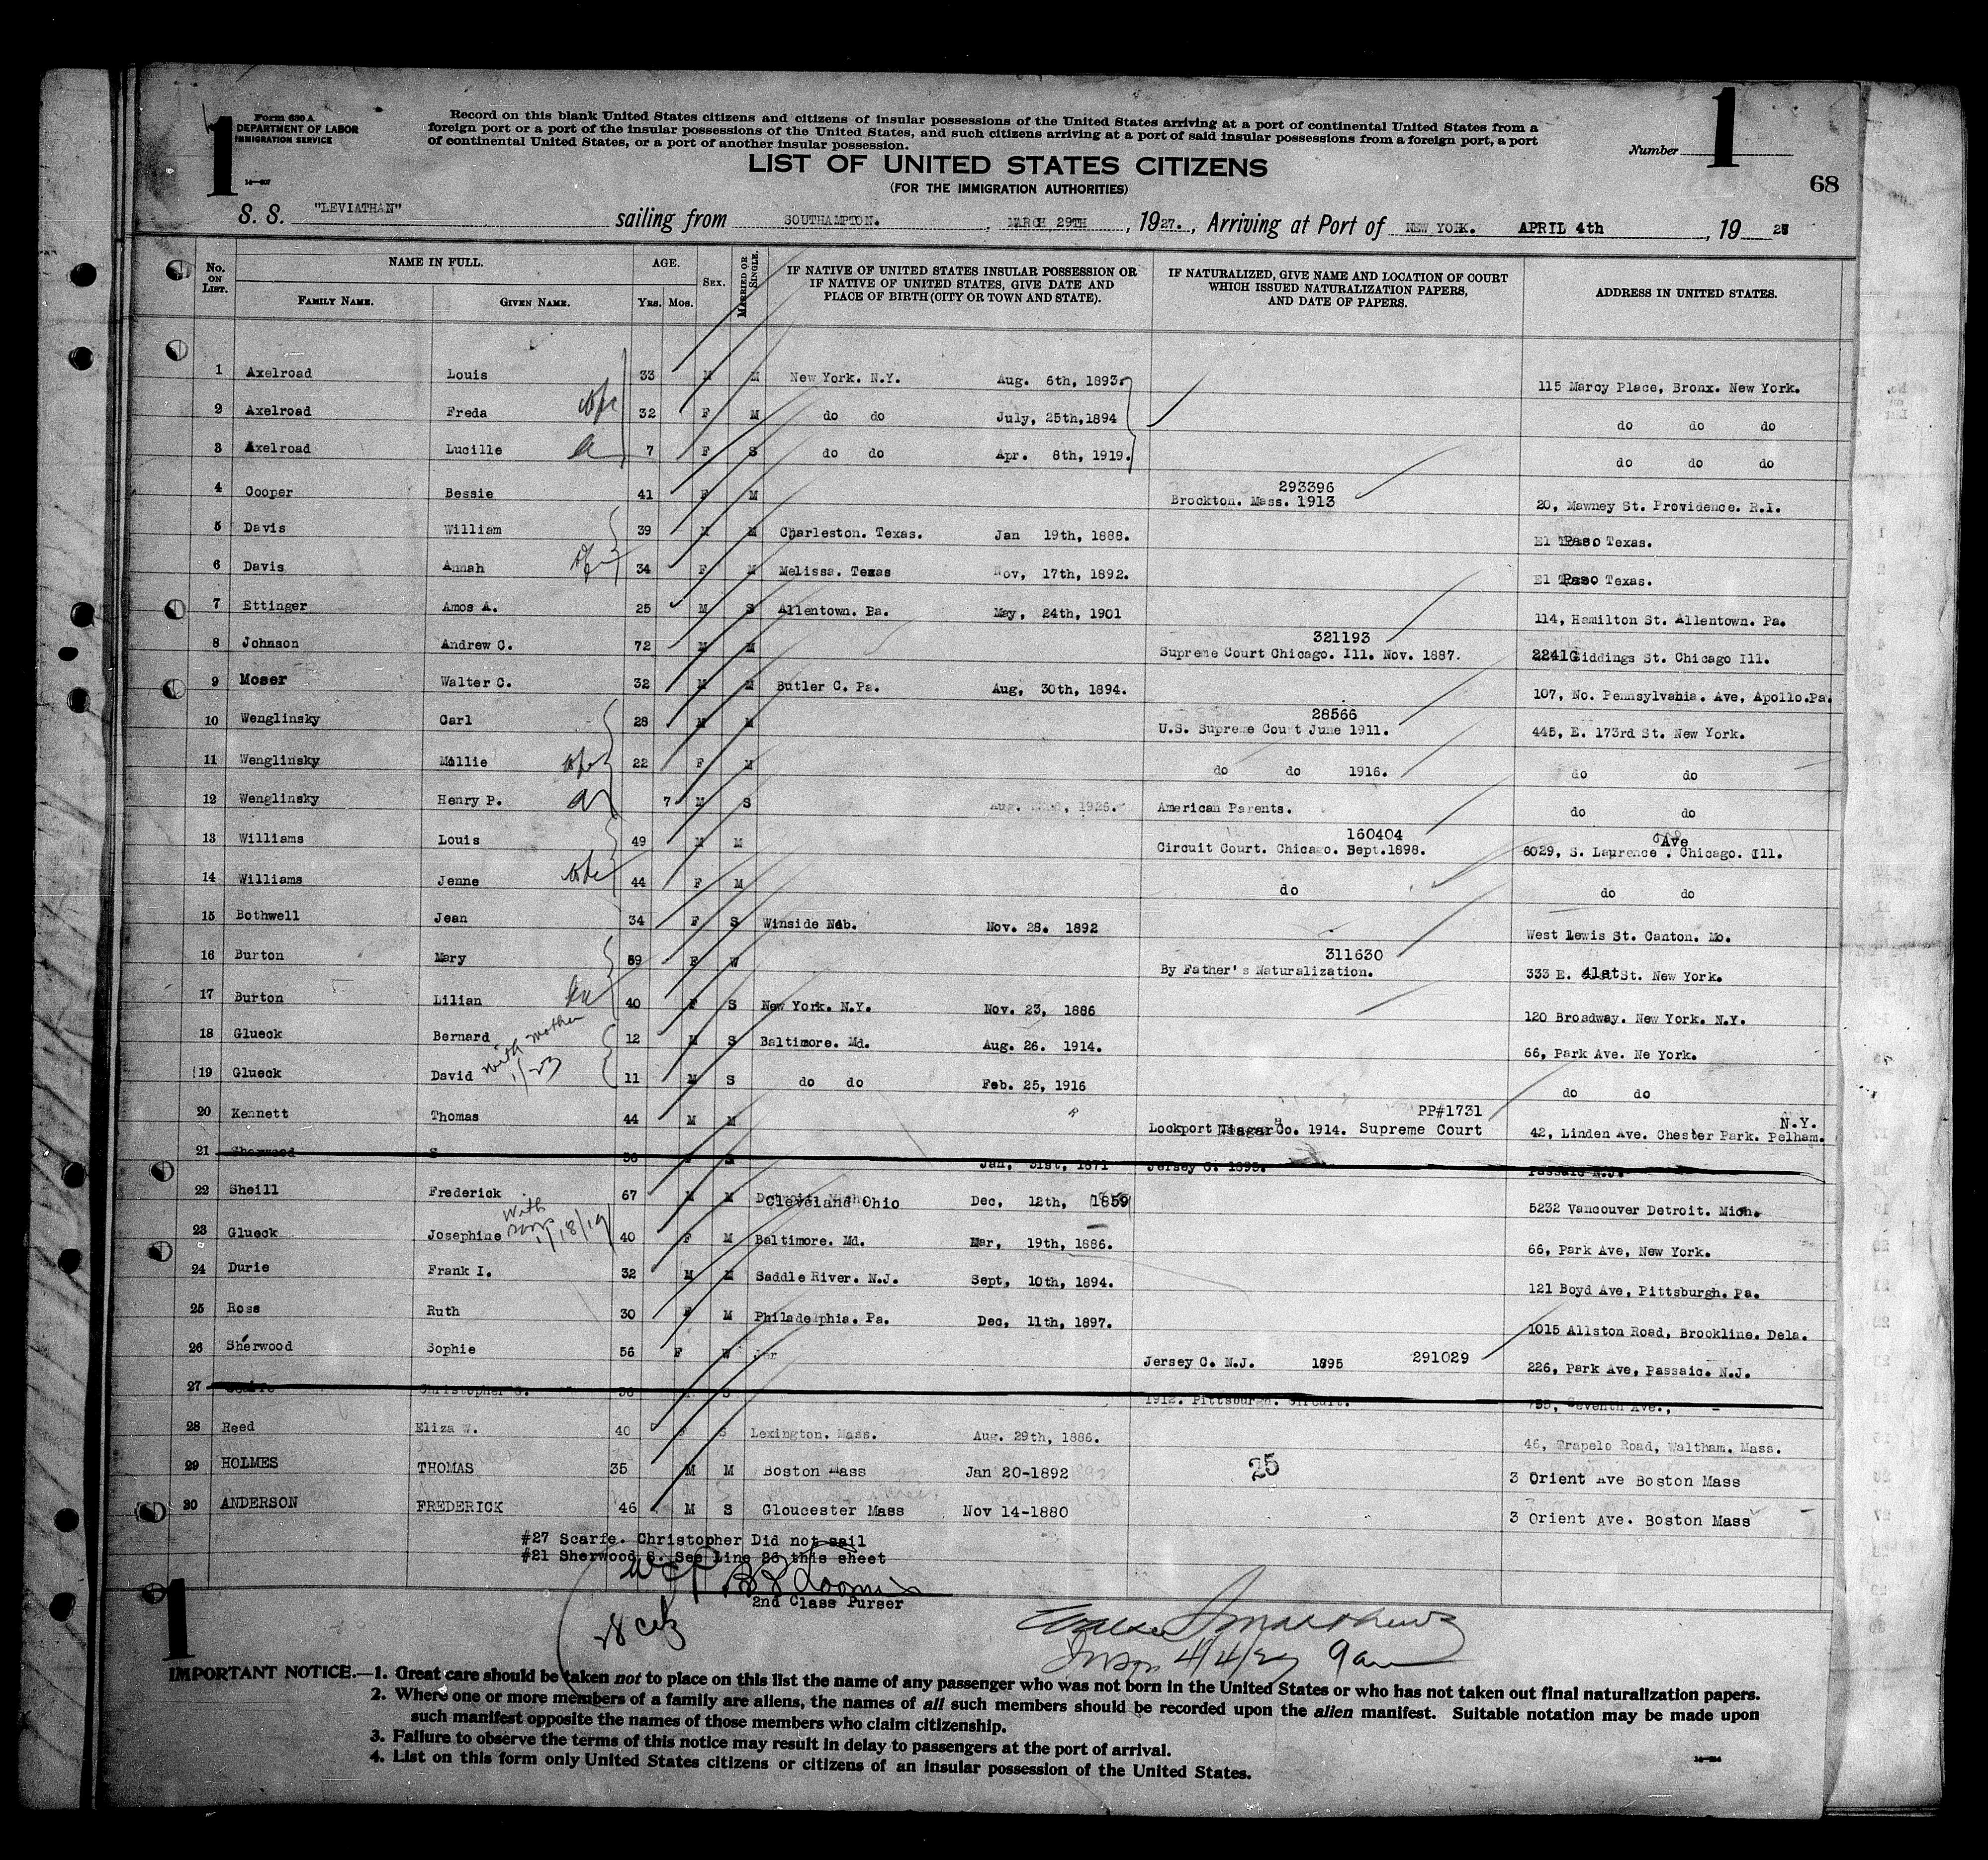 1
1
Form 630 A
DEPARTMENT OF LABOR
IMMIGRATION SERVICE
Record on this blank United States citizens and citizens of insular possessions of the United States arriving at a port of continental United States from a
foreign port or a port of the insular possessions of the United States, and such citizens arriving at a port of said insular possessions from a foreign port, a port
of continental United States, or a port of another insular possession.
Number
LIST OF UNITED STATES CITIZENS
(FOR THE IMMIGRATION AUTHORITIES)
68
S. S. "LEVIATHAN" sailing from SOUTHAMPTON. , MARCH 29TH , 1927. , Arriving at Port of NEW YORK. APRIL 4th , 19 27
No. ON LIST. NAME IN FULL. AGE. SEX. MARRIED OR SINGLE. IF NATIVE OF UNITED STATES INSULAR POSSESSION OR IF NATIVE OF UNITED STATES, GIVE DATE AND PLACE OF BIRTH (CITY OR TOWN AND STATE). IF NATURALIZED, GIVE NAME AND LOCATION OF COURT WHICH ISSUED NATURALIZATION PAPERS, AND DATE OF PAPERS. ADDRESS IN UNITED STATES.
FAMILY NAME. GIVEN NAME. YRS. MOS.
1 Axelroad Louis 33 M M New York. N.Y. Aug. 6th, 1893. 115 Marcy Place, Bronx. New York.
2 Axelroad Freda wfe 32 F M do do July, 25th,1894 do do do
3 Axelroad Lucille 7 F S do do Apr. 8th, 1919. do do do
4 Cooper Bessie 41 F M 293396 Brockton. Mass. 1913 20, Mawney St. Providence. R.I.
5 Davis William 39 M M Charleston. Texas. Jan 19th, 1888. El Paso Texas.
6 Davis Annah 34 F M Melissa. Texas Nov, 17th, 1892. El Paso Texas.
7 Ettinger Amos A. 25 M S Allentown. Pa. May, 24th, 1901 114, Hamilton St. Allentown. Pa.
8 Johnson Andrew C. 72 M M 321193 Supreme Court Chicago. Ill. Nov. 1887. 2241 Giddings St. Chicago Ill.
9 Moser Walter C. 32 M M Butler C. Pa. Aug, 30th, 1894. 107, No. Pennsylvahia. Ave, Apollo.Pa.
10 Wenglinsky Carl 28 M M 28566 U.S. Supreme Court June 1911. 445, E. 173rd St. New York.
11 Wenglinsky Mollie wfe 22 F M do do 1916. do do
12 Wenglinsky Henry P. 7 M S 1926. American Parents. do do
13 Williams Louis 49 M M 160404 Circuit Court. Chicago. Sept.1898. 6029, S. Laurence Ave. Chicago. Ill.
14 Williams Jenne wfe 44 F M do do do
15 Bothwell Jean 34 F S Winside Neb. Nov. 28. 1892 West Lewis St. Canton. Mo.
16 Burton Mary 59 F W 311630 By Father's Naturalization. 333 E. 41st St. New York.
17 Burton Lilian 40 F S New York. N.Y. Nov. 23, 1886 120 Broadway. New York. N.Y.
18 Glueck Bernard with mother 12 M S Baltimore. Md. Aug. 26. 1914. 66, Park Ave. Ne York.
19 Glueck David 1/23 11 M S do do Feb. 25, 1916 do do
20 Kennett Thomas 44 M M PP#1731 Lockport Niagara Co. 1914. Supreme Court 42, Linden Ave. Chester Park. Pelham. N.Y.
21 Sherwood S 56 Jan, 31st, 1871 Jersey C. 1895. Passaic N.J.
22 Sheill Frederick 67 M M Cleveland Ohio Dec, 12th, 1859 5232 Vancouver Detroit. Mich.
23 Glueck Josephine with sons 1/18/19 40 F M Baltimore. Md. Mar, 19th, 1886. 66, Park Ave, New York.
24 Durie Frank I. 32 M M Saddle River. N.J. Sept, 10th, 1894. 121 Boyd Ave, Pittsburgh. Pa.
25 Ross Ruth 30 F M Philadelphia. Pa. Dec, 11th, 1897. 1015 Allston Road, Brookline. Dela.
26 Sherwood Sophie 56 F W Jer Jersey C. N.J. 1895 291029 226, Park Ave, Passaic. N.J.
27 Scarfe Christopher G. S 1912. Pittsburgh. Circuit. 755, Seventh Ave.,
28 Reed Eliza W. 40 F S Lexington. Mass. Aug. 29th, 1886. 46, Trapelo Road, Waltham. Mass.
29 HOLMES THOMAS 35 M M Boston Mass Jan 20-1892 25 3 Orient Ave Boston Mass
30 ANDERSON FREDERICK 46 M S Gloucester Mass Nov 14-1880 3 Orient Ave. Boston Mass
#27 Scarfe. Christopher Did not sail
#21 Sherwood S. See Line 26 this sheet
2nd Class Purser
Insp. 4/4/27 9 am
1
IMPORTANT NOTICE.—1. Great care should be taken not to place on this list the name of any passenger who was not born in the United States or who has not taken out final naturalization papers.
2. Where one or more members of a family are aliens, the names of all such members should be recorded upon the alien manifest. Suitable notation may be made upon
such manifest opposite the names of those members who claim citizenship.
3. Failure to observe the terms of this notice may result in delay to passengers at the port of arrival.
4. List on this form only United States citizens or citizens of an insular possession of the United States.